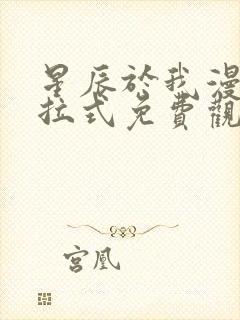 星辰於我漫
拉式免費觀
宮凰